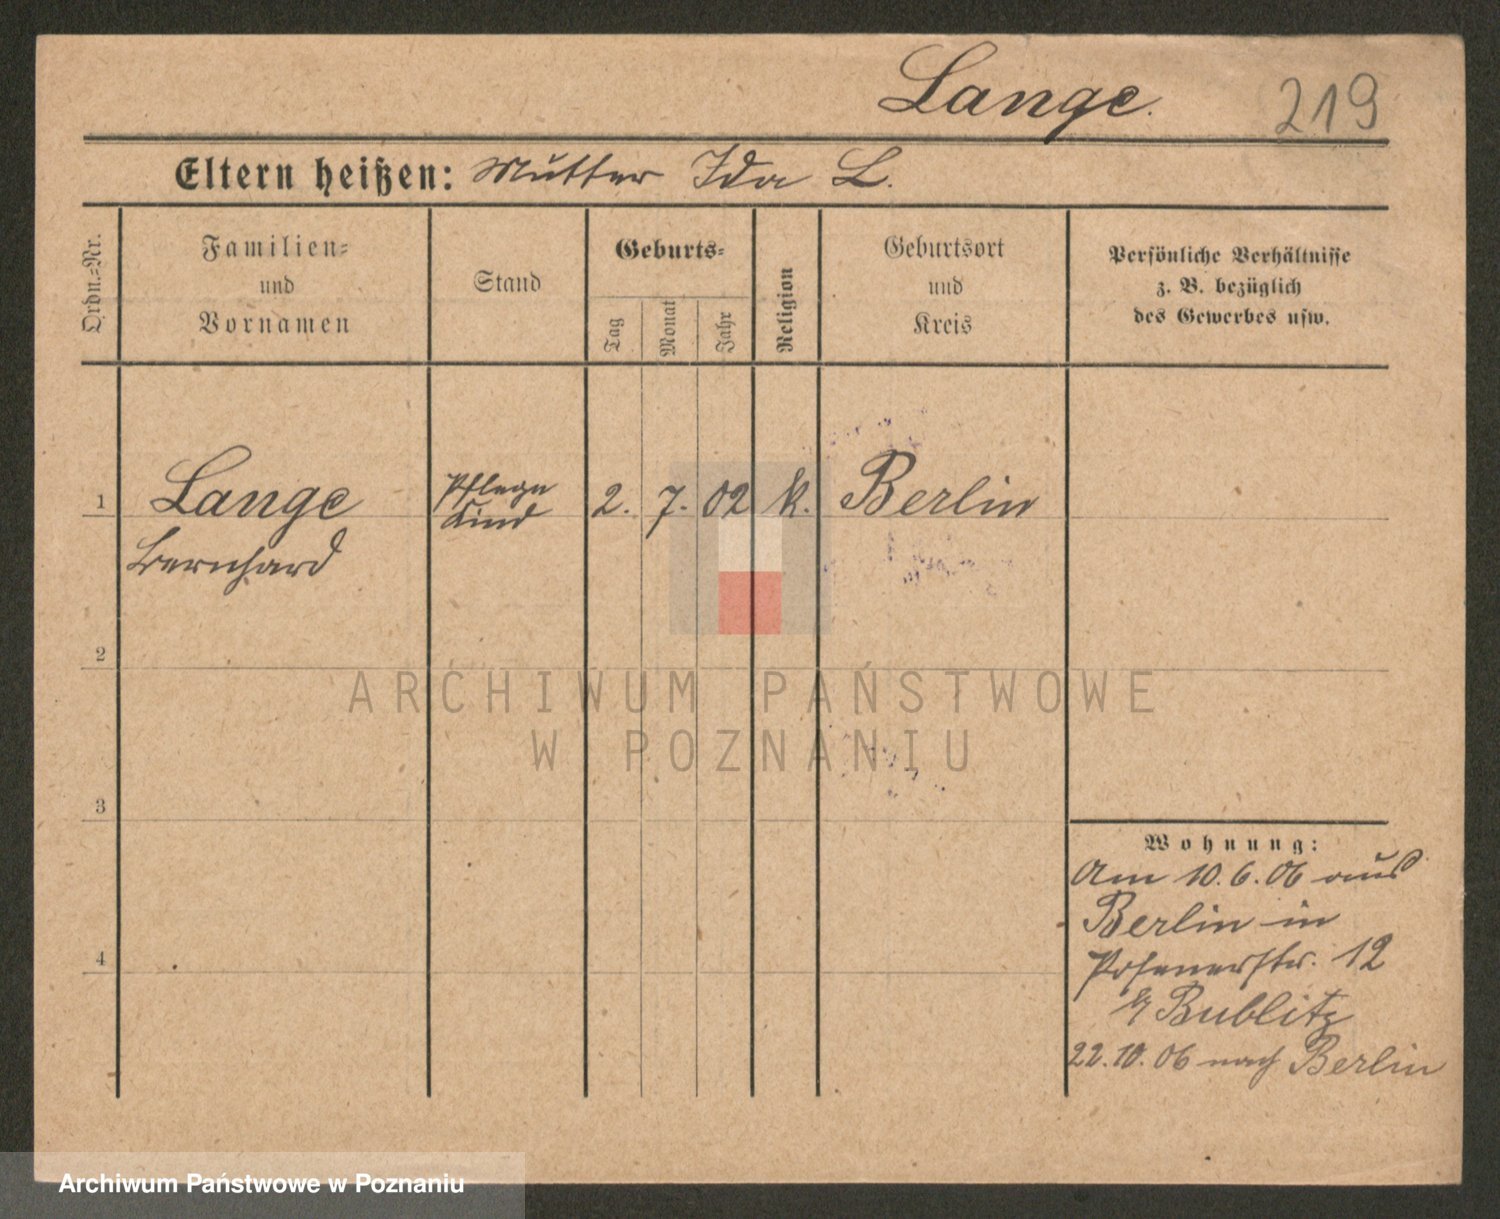 Lange.
219
Eltern heißen: Mutter Ida L.
Ordn.-Nr.
Familien-
und
Vornamen
Stand
Geburts-
Tag
Monat
Jahr
Religion
Geburtsort
und
Kreis
Persönliche Verhältnisse
z. B. bezüglich
des Gewerbes usw.
1
Lange
Bernhard
Pflege
Kind
2. 7. 02 k. Berlin
2
ARCHIWUM PAŃSTWOWE
W POZNANIU
3
4
Wohnung:
Am 10.6.06 aus
Berlin in
Posenerstr. 12
Bublitz
22.10.06 nach Berlin
Archiwum Państwowe w Poznaniu